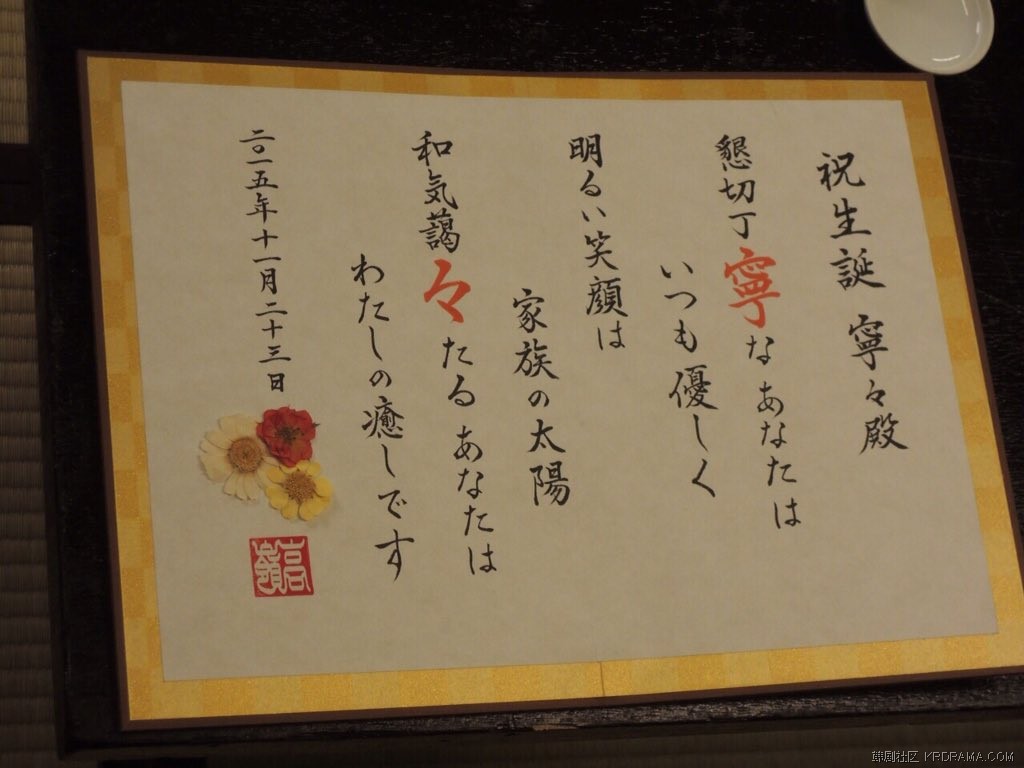 祝生誕 寧々殿
懇切丁寧なあなたは
いつも優しく
明るい笑顔は
家族の太陽
和気藹々たるあなたは
わたしの癒しです
二〇一五年十一月二十三日
高嶺
韩剧社区 KRDRAMA.COM